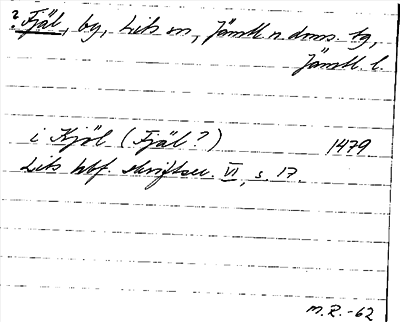 ? Fjäl, by, Lits sn, Jämtl n. doms. bg,
Jämtl. l.
i Kjöl (Fjäl?) 1479
Lits hbf. skriftser. VI, s. 17.
M.R.-62